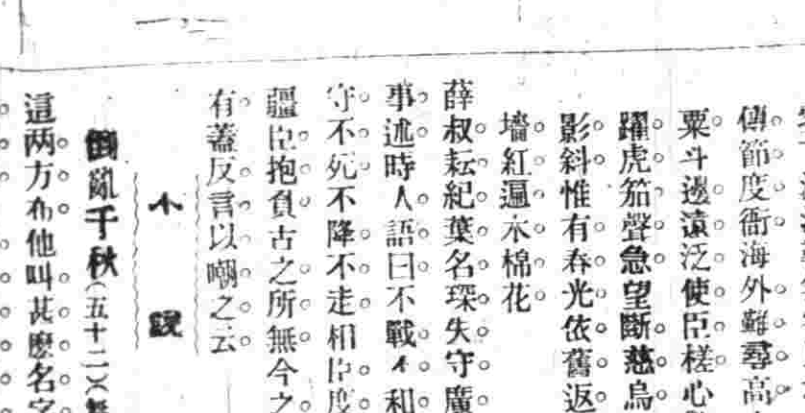 傳節度衙海外難尋高
粟斗邊遠泛使臣槎心
躍虎笳聲急望斷慈烏
影斜惟有春光依舊返
墻紅遍木棉花
薛叔耘紀葉名琛失守廣
事述時人語曰不戰不和
守不死不降不走相臣度
疆臣抱負古之所無今之
有蓋反言以嘲之云
小說
倒亂千秋(五十二)
這两方布他叫甚麽名字